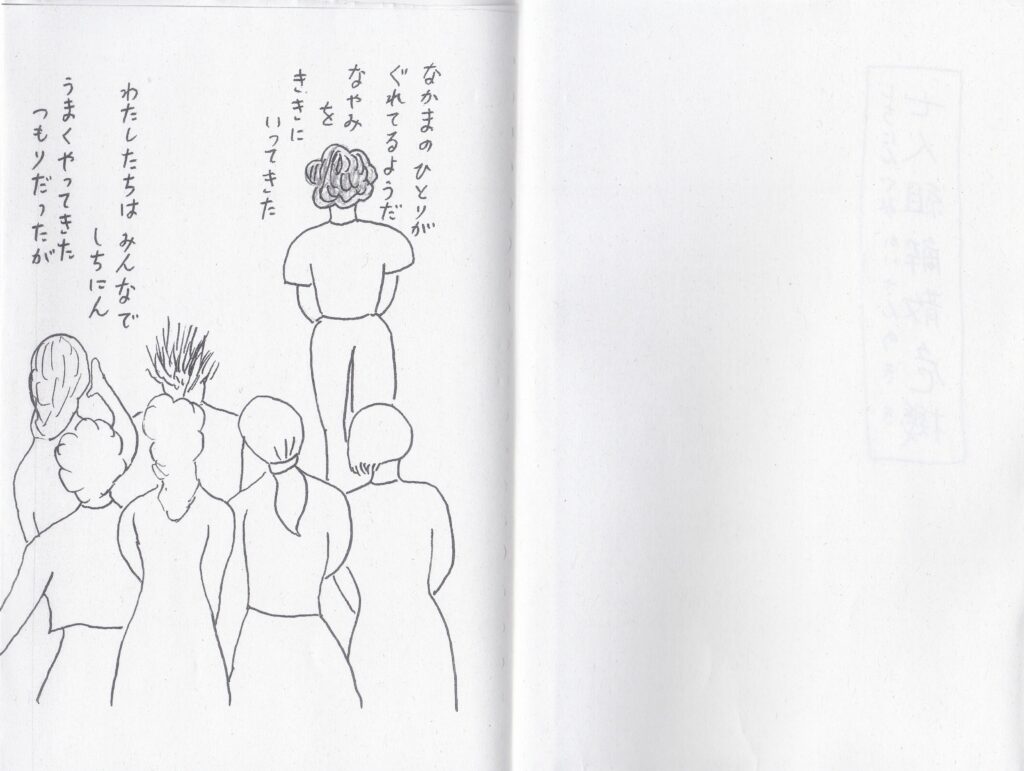 七人組解散危機
なかまのひとりが
ぐれてるようだ
なやみ
を
ききに
いってきた
わたしたちは みんなで
しちにん
うまくやってきた
つもりだったが